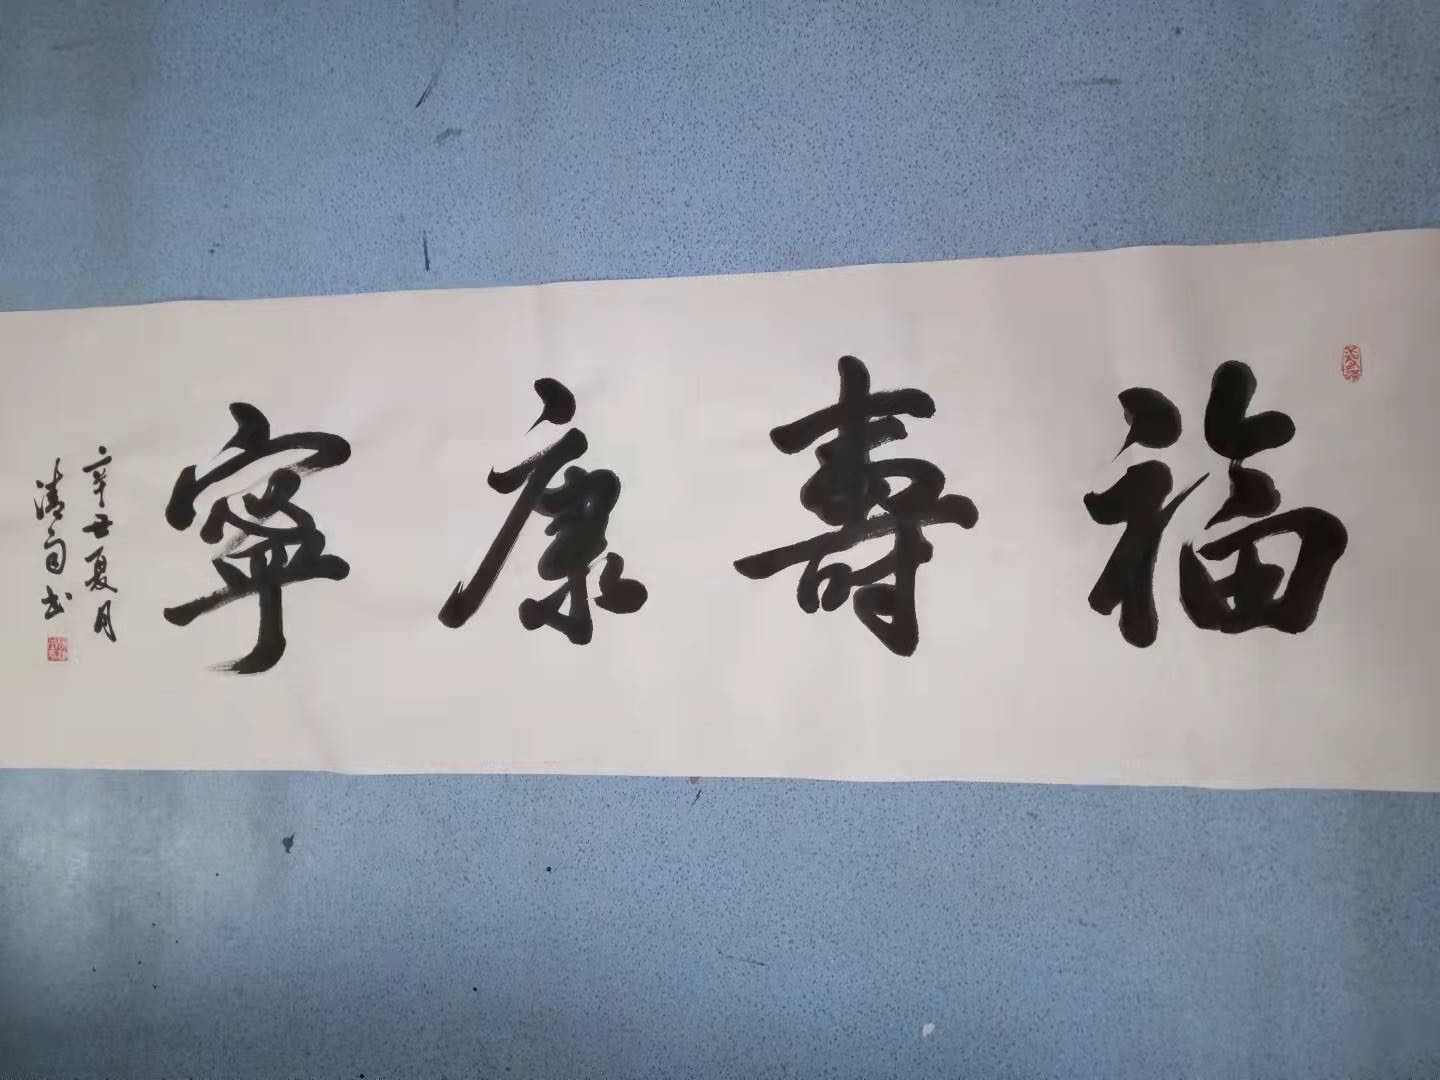 福壽康寧
辛丑夏月
清雨书